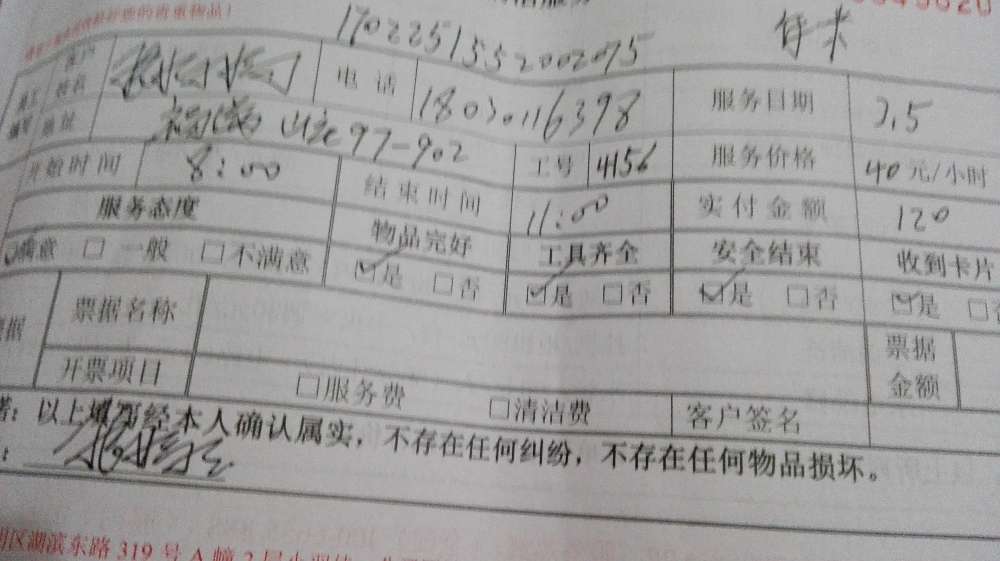 1702251552002075 年卡
电话 18030116398 服务日期 3.5
地址 97-902 工号 4156 服务价格 40元/小时
开始时间 8:00 结束时间 11:00 实付金额 120
服务态度 物品完好 工具齐全 安全结束 收到卡片
满意 □一般 □不满意 ☑是 □否 ☑是 □否 ☑是 □否 ☑是
票据名称 票据金额
开票项目 □服务费 □清洁费 客户签名
以上填写经本人确认属实，不存在任何纠纷，不存在任何物品损坏。
区湖滨东路319号A幢2层